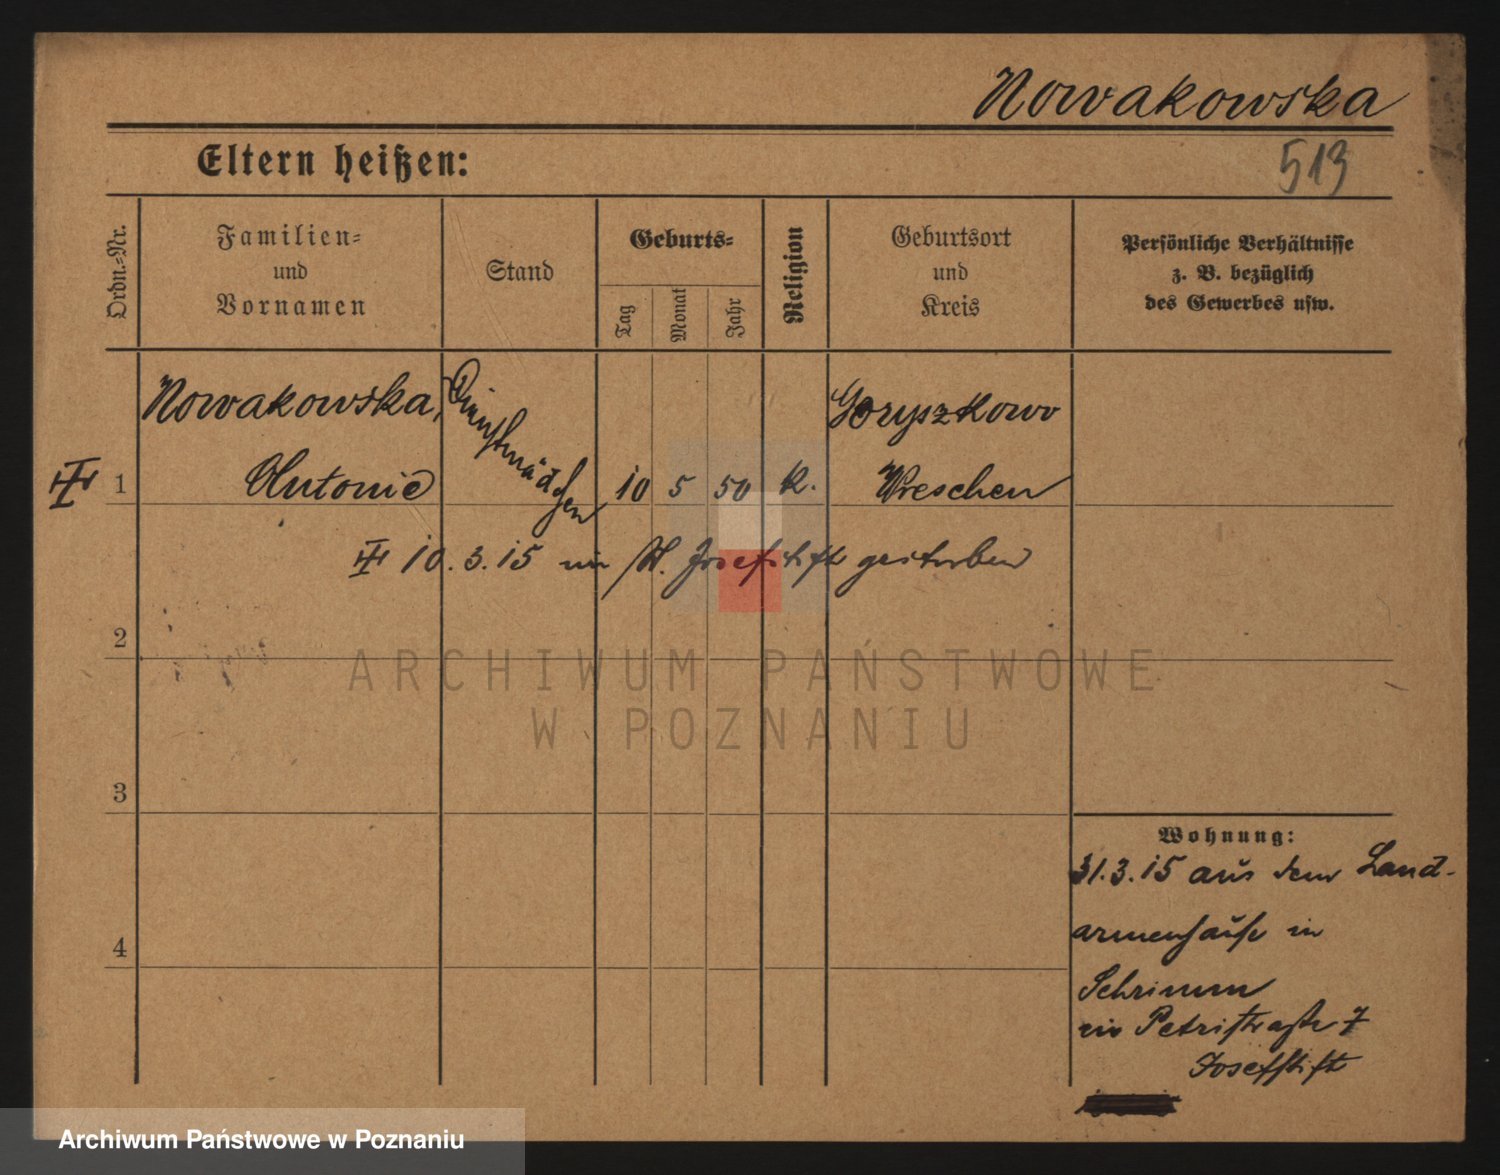 Nowakowska
513
Eltern heißen:
Ordn.-Nr.
Familien-
und
Vornamen
Stand
Geburts-
Tag
Monat
Jahr
Religion
Geburtsort
und
Kreis
Persönliche Verhältnisse
z. B. bezüglich
des Gewerbes usw.
Nowakowska, Dienstmädchen Goryszkowo
1 Antonie 10 5 50 k. Wreschen
10.3.15 im St. Josefstift gestorben
2
3
4
Wohnung:
31.3.15 aus dem Land-
armenhause in
Schrimm
in Petristraße 7
Josefstift
ARCHIWUM PAŃSTWOWE
W POZNANIU
Archiwum Państwowe w Poznaniu